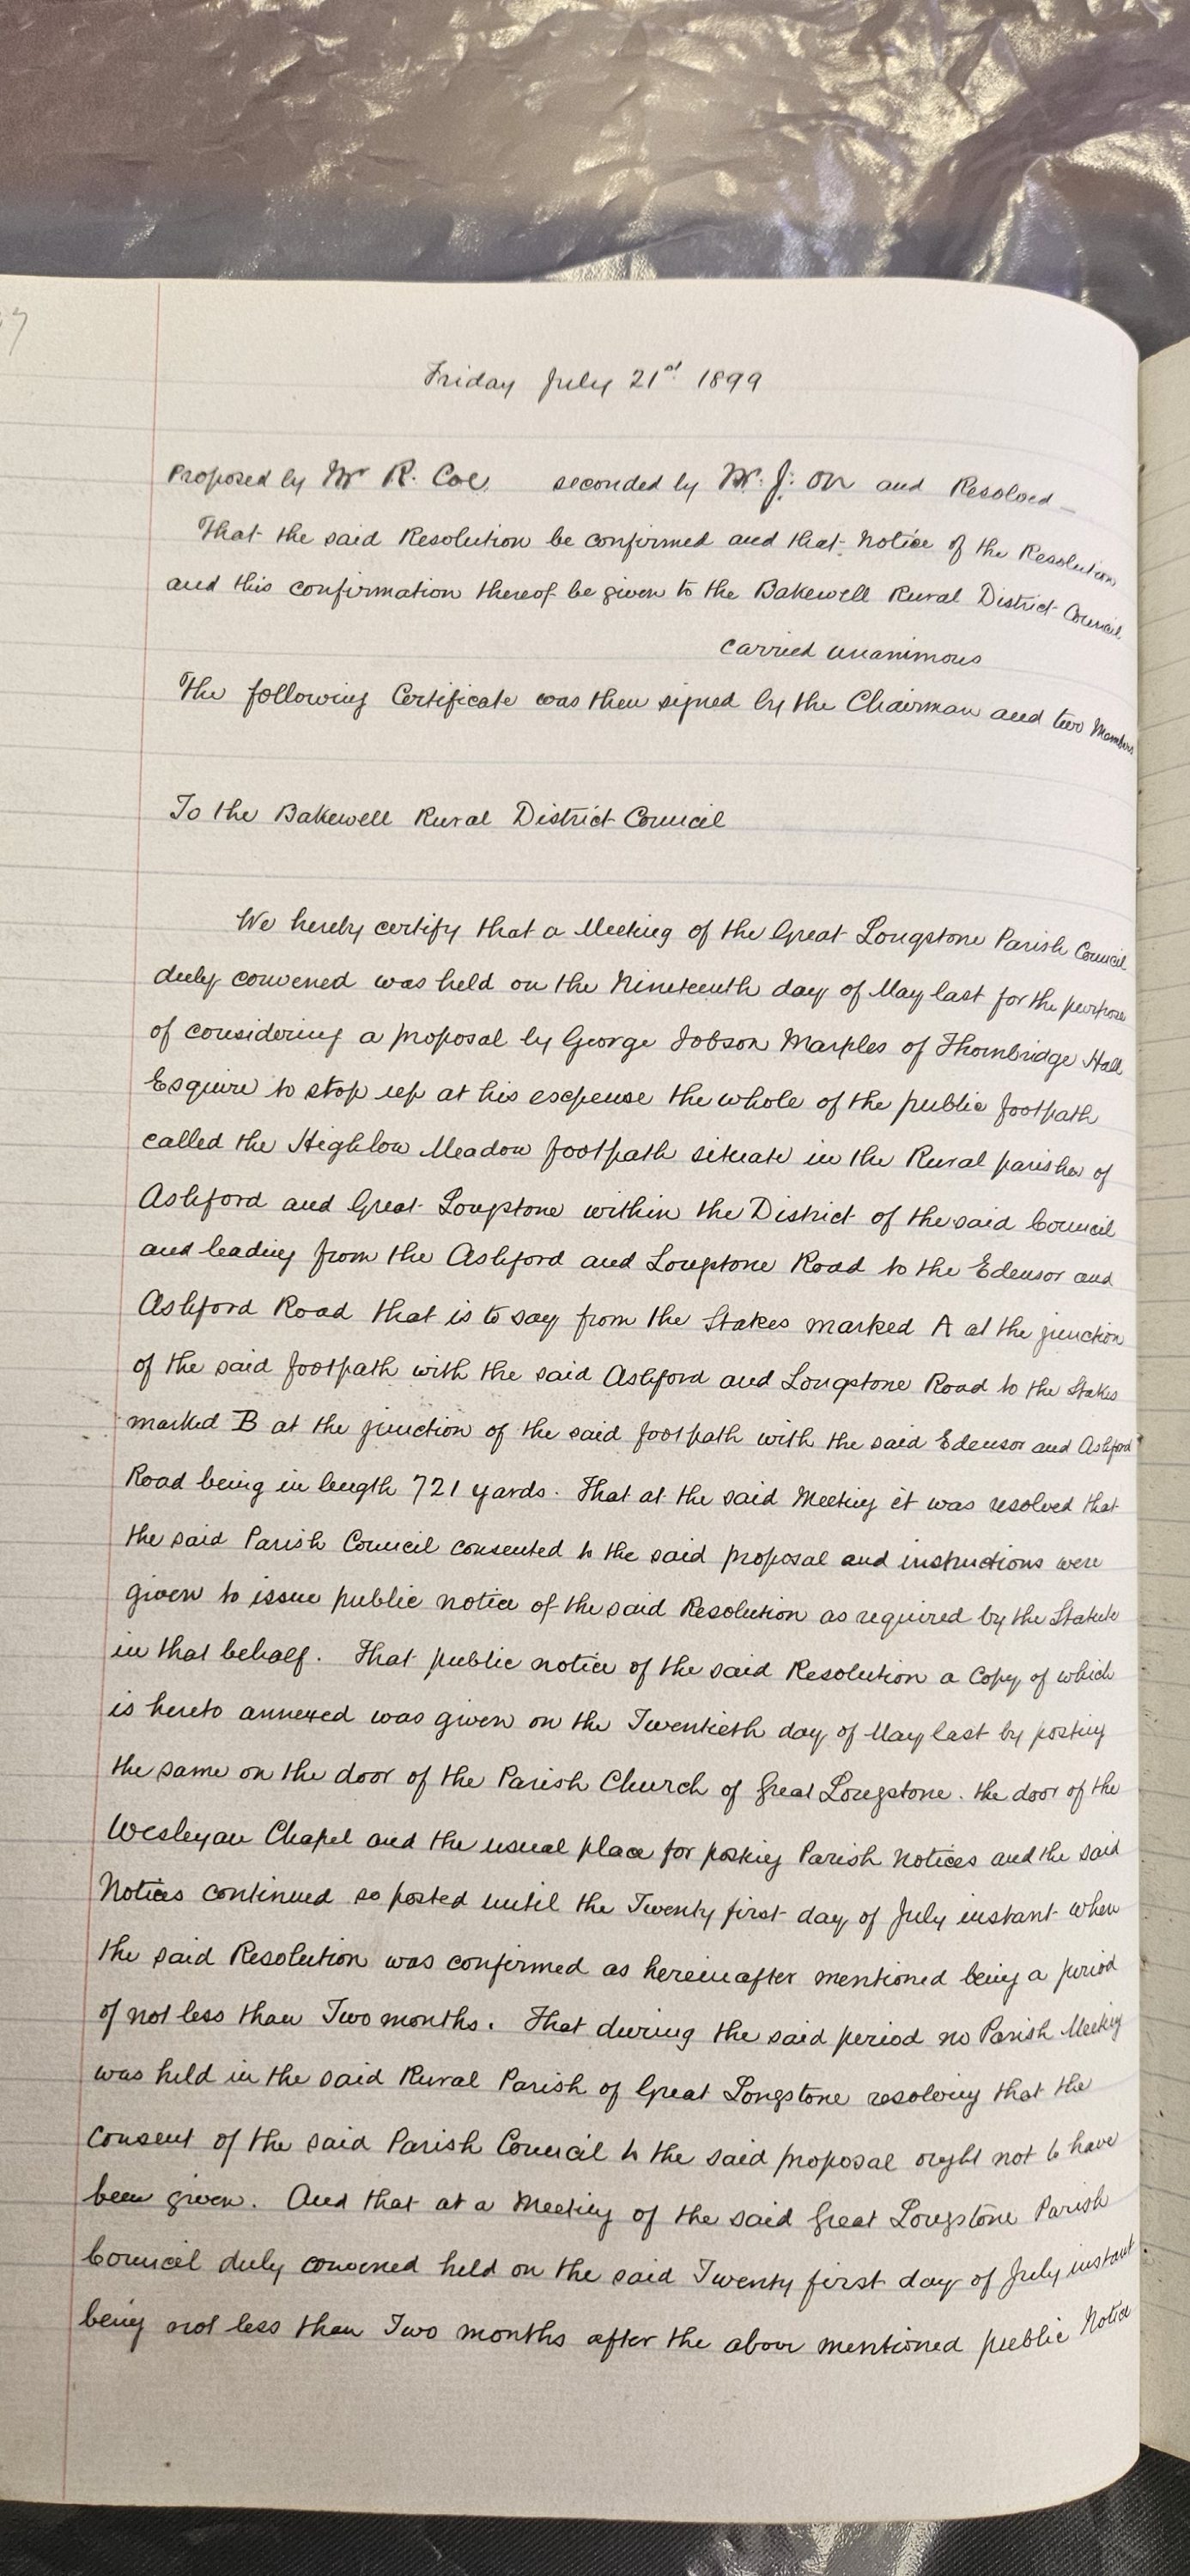 Friday July 21st 1899
Proposed by Mr R. Coe seconded by Mr. J. Orr and Resolved
That the said Resolution be confirmed and that notice of the Resolution
and this confirmation thereof be given to the Bakewell Rural District Council
carried unanimous
The following Certificate was then signed by the Chairman and two Members
To the Bakewell Rural District Council
We hereby certify that a Meeting of the Great Longstone Parish Council
duly convened was held on the Nineteenth day of May last for the purpose
of considering a proposal by George Jobson Marples of Thornbridge Hall
Esquire to stop up at his expense the whole of the public footpath
called the Highlow Meadow footpath situate in the Rural parishes of
Ashford and Great Longstone within the District of the said Council
and leading from the Ashford and Longstone Road to the Edensor and
Ashford Road that is to say from the Stakes marked A at the junction
of the said footpath with the said Ashford and Longstone Road to the Stakes
marked B at the junction of the said footpath with the said Edensor and Ashford
Road being in length 721 yards. That at the said Meeting it was resolved that
the said Parish Council consented to the said proposal and instructions were
given to issue public notice of the said Resolution as required by the Statute
in that behalf. That public notice of the said Resolution a Copy of which
is hereto annexed was given on the Twentieth day of May last by posting
the same on the door of the Parish Church of Great Longstone. the door of the
Wesleyan Chapel and the usual place for posting Parish Notices and the said
Notices continued so posted until the Twenty first day of July instant when
the said Resolution was confirmed as hereinafter mentioned being a period
of not less than Two months. That during the said period no Parish Meeting
was held in the said Rural Parish of Great Longstone resolving that the
consent of the said Parish Council to the said proposal ought not to have
been given. And that at a Meeting of the said Great Longstone Parish
Council duly convened held on the said Twenty first day of July instant
being not less than Two months after the above mentioned public Notice